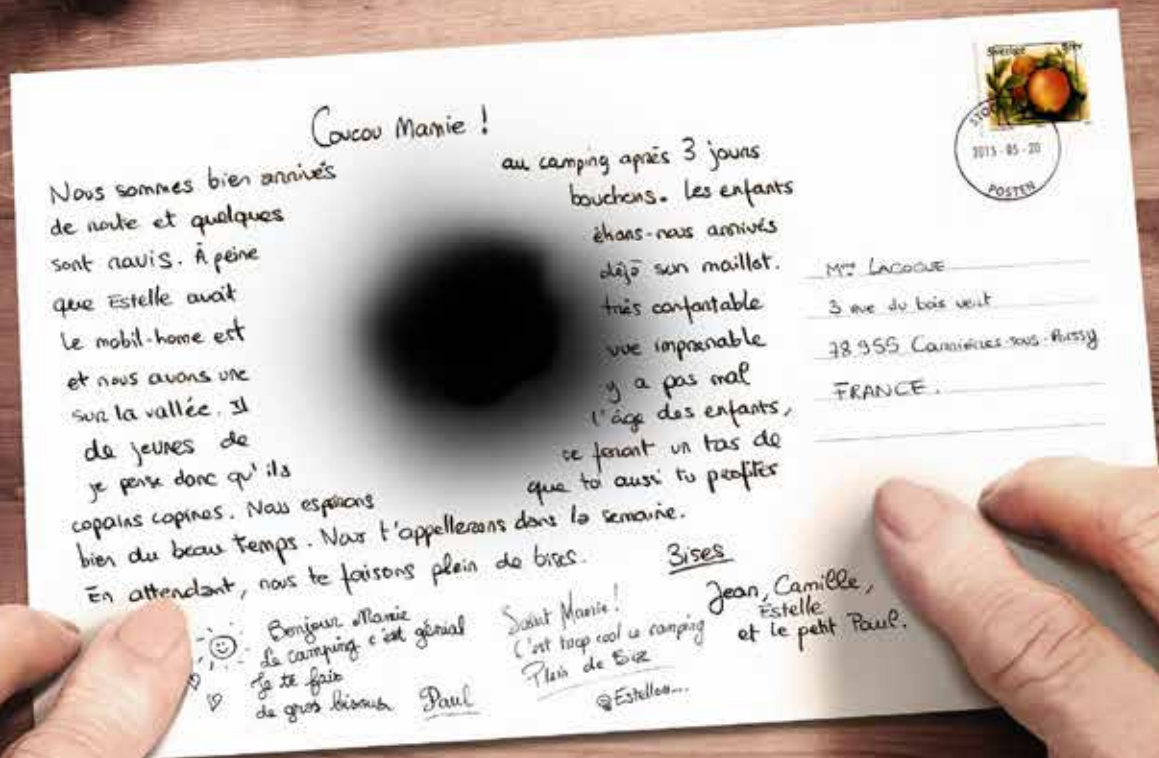 Coucou Mamie !
Nous sommes bien arrivés au camping après 3 jours
de route et quelques bouchons. Les enfants
sont ravis. À peine étions-nous arrivés
que Estelle avait déjà son maillot.
Le mobil-home est très confortable
et nous avons une vue imprenable
sur la vallée. Il y a pas mal
de jeunes de l'âge des enfants,
je pense donc qu'ils se feront un tas de
copains copines. Nous espérons que toi aussi tu profites
bien du beau temps. Nous t'appellerons dans la semaine.
En attendant, nous te faisons plein de bises.
Bises
Jean, Camille,
Estelle
et le petit Paul.
Bonjour Mamie
Le camping c'est génial
Je te fais
de gros bisous Paul
Salut Mamie!
C'est trop cool ce camping
Plein de Biz
Sverige
POSTEN
Mme LACOQUE
3 rue du bois vert
78 955 Carrières-sous-Poissy
FRANCE.